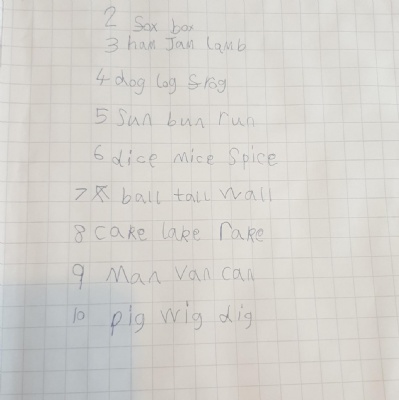 2 Sox box
3 ham Jam lamb
4 dog log frog
5 Sun bun run
6 dice mice Spice
7 ball tall wall
8 cake lake rake
9 Man Van can
10 pig wig dig